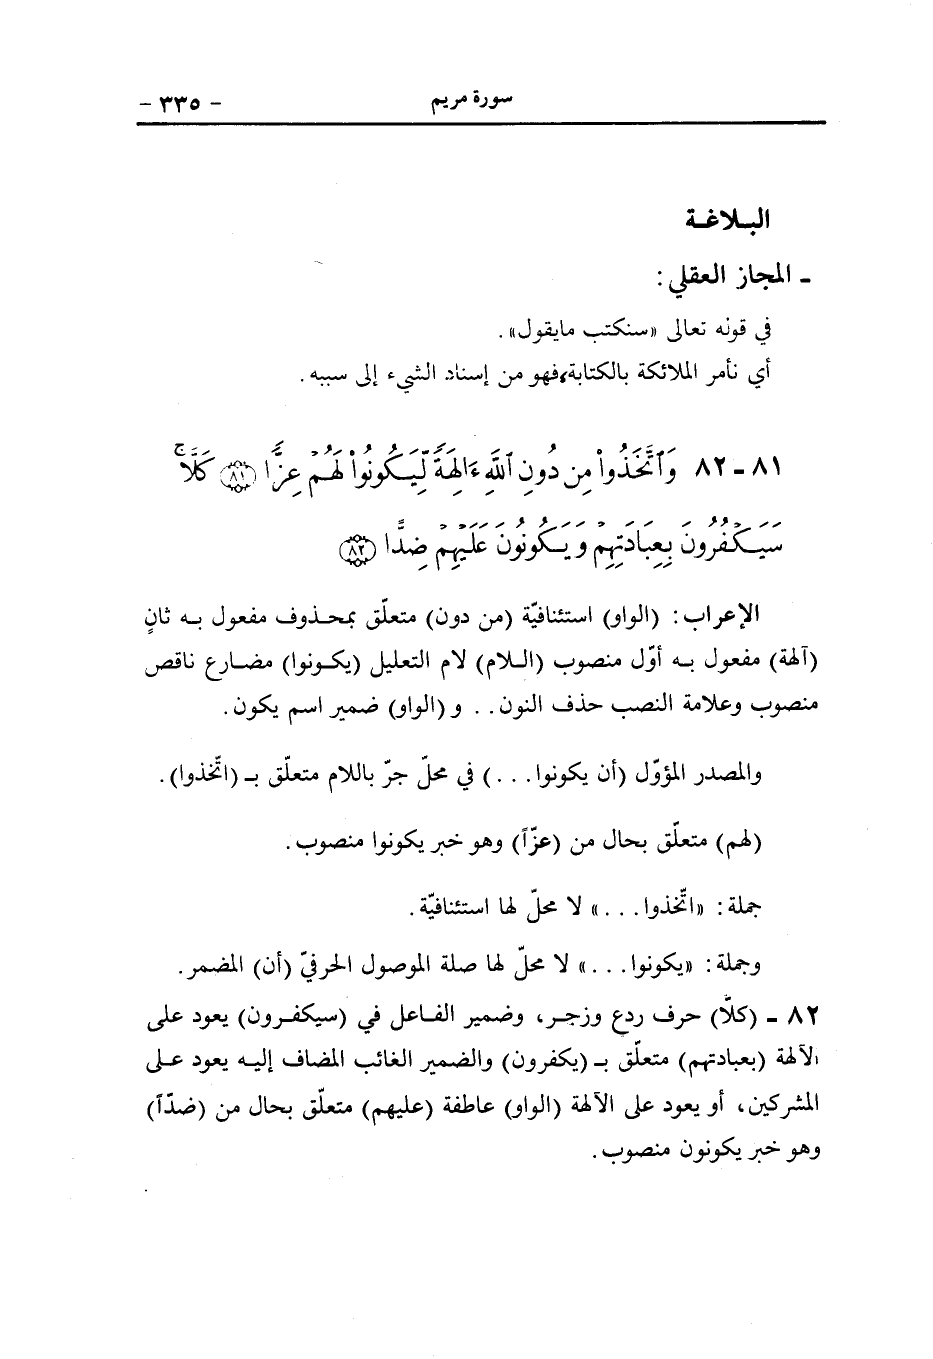 سورة مريم - ٣٣٥ -
البـلاغـة
- المجاز العقلي :
في قوله تعالى «سنكتب مايقول» .
أي نأمر الملائكة بالكتابة، فهو من إسناد الشيء إلى سببه .
٨١ - ٨٢ وَٱتَّخَذُوا۟ مِن دُونِ ٱللَّهِ ءَالِهَةً لِّيَكُونُوا۟ لَهُمْ عِزًّا (٨١) كَلَّا ۚ
سَيَكْفُرُونَ بِعِبَادَتِهِمْ وَيَكُونُونَ عَلَيْهِمْ ضِدًّا (٨٢)
الإعراب : (الواو) استئنافيّة (من دون) متعلّق بمحذوف مفعول به ثانٍ
(آلهة) مفعول به أوّل منصوب (اللام) لام التعليل (يكونوا) مضارع ناقص
منصوب وعلامة النصب حذف النون . . و (الواو) ضمير اسم يكون .
والمصدر المؤوّل (أن يكونوا . . .) في محلّ جرّ باللام متعلّق بـ (اتّخذوا) .
(لهم) متعلّق بحال من (عزّاً) وهو خبر يكونوا منصوب .
جملة : «اتّخذوا . . .» لا محلّ لها استئنافيّة .
وجملة : «يكونوا . . .» لا محلّ لها صلة الموصول الحرفيّ (أن) المضمر .
٨٢ - (كلّا) حرف ردع وزجر، وضمير الفاعل في (سيكفرون) يعود على
الآلهة (بعبادتهم) متعلّق بـ (يكفرون) والضمير الغائب المضاف إليه يعود على
المشركين، أو يعود على الآلهة (الواو) عاطفة (عليهم) متعلّق بحال من (ضدّاً)
وهو خبر يكونون منصوب .